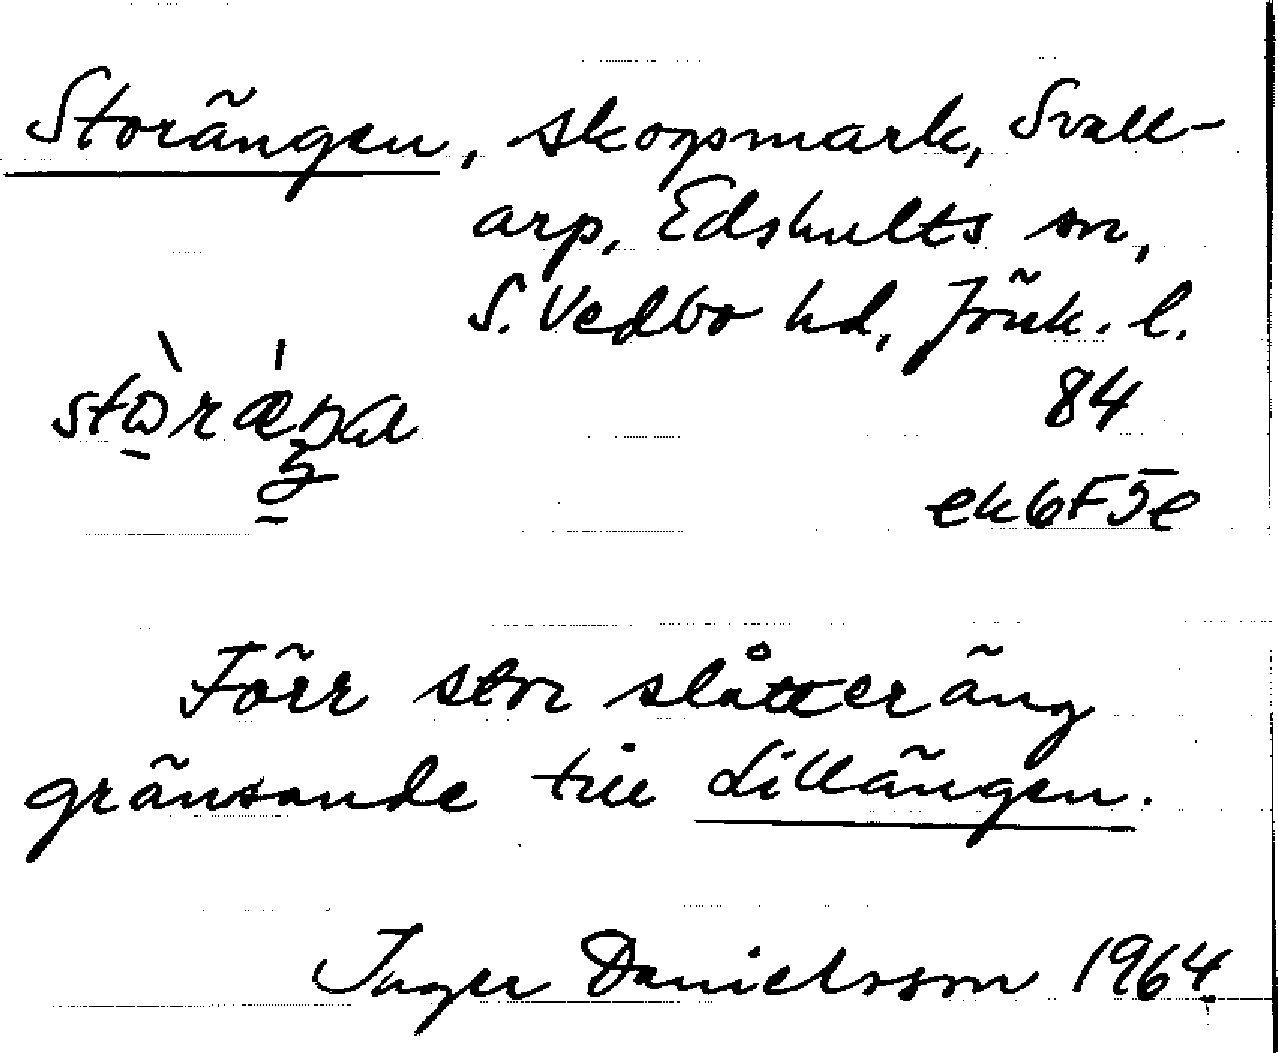 Storängen, skogsmark, Svall-
arp, Edshults sn,
S. Vedbo hd, Jönk. l.
84
ek6F5e
Förr stor slåtteräng
gränsande till Lillängen.
Inger Danielsson 1964